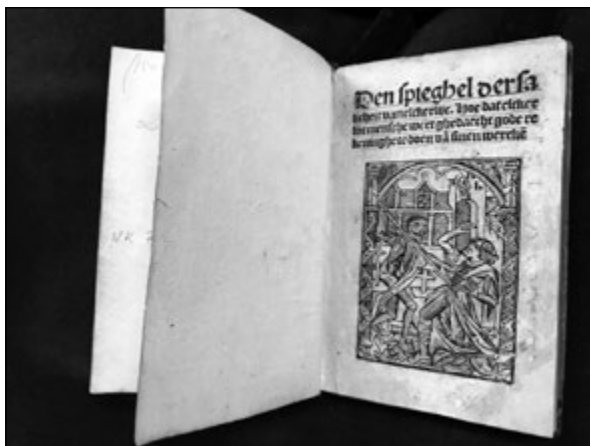 NK
Den spieghel der sa
licheyt van elckerlijc. Hoe dat elcker
lijc mensche wert ghedaecht gode re
keninghe te doen vā sinen werckē